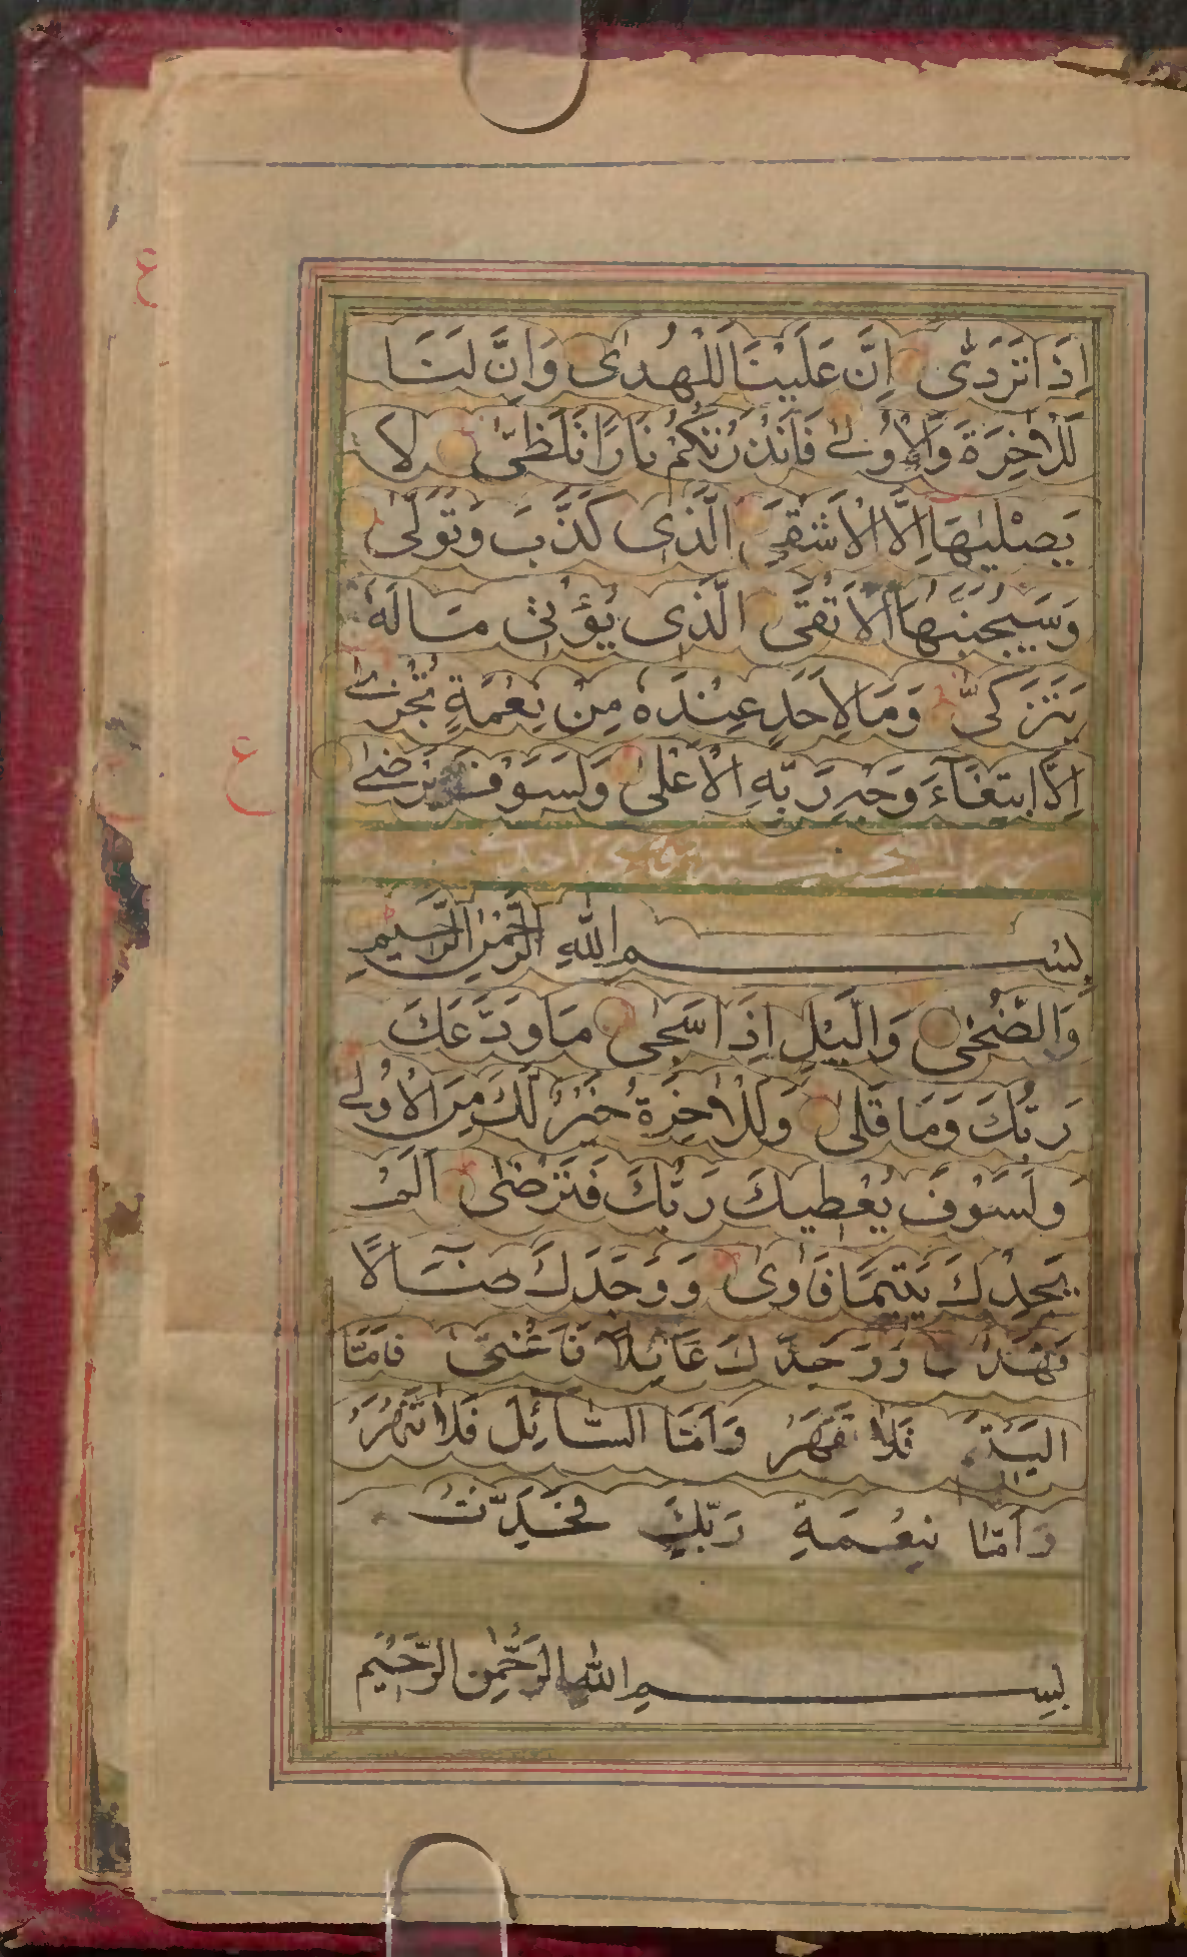 اِذَا تَرَدّٰى اِنَّ عَلَيْنَا لَلْهُدٰى وَاِنَّ لَنَا
لَلْاٰخِرَةَ وَالْاُوْلٰى فَاَنْذَرْتُكُمْ نَارًا تَلَظّٰى لَا
يَصْلٰيهَا اِلَّا الْاَشْقَى الَّذِى كَذَّبَ وَتَوَلّٰى
وَسَيُجَنَّبُهَا الْاَتْقَى الَّذِى يُؤْتِى مَالَهُ
يَتَزَكّٰى وَمَا لِاَحَدٍ عِنْدَهُ مِنْ نِعْمَةٍ تُجْزٰى
اِلَّا ابْتِغَآءَ وَجْهِ رَبِّهِ الْاَعْلٰى وَلَسَوْفَ يَرْضٰى
سورة الضحى احدى عشر
بِسْمِ اللّٰهِ الرَّحْمٰنِ الرَّحِيمِ
وَالضُّحٰى وَالَّيْلِ اِذَا سَجٰى مَا وَدَّعَكَ
رَبُّكَ وَمَا قَلٰى وَلَلْاٰخِرَةُ خَيْرٌ لَكَ مِنَ الْاُوْلٰى
وَلَسَوْفَ يُعْطِيكَ رَبُّكَ فَتَرْضٰى اَلَمْ
يَجِدْكَ يَتِيمًا فَاٰوٰى وَوَجَدَكَ ضَآلًّا
فَهَدٰى وَوَجَدَكَ عَائِلًا فَاَغْنٰى فَاَمَّا
الْيَتِيمَ فَلَا تَقْهَرْ وَاَمَّا السَّآئِلَ فَلَا تَنْهَرْ
وَاَمَّا بِنِعْمَةِ رَبِّكَ فَحَدِّثْ
بِسْمِ اللّٰهِ الرَّحْمٰنِ الرَّحِيْمِ
ع
ع